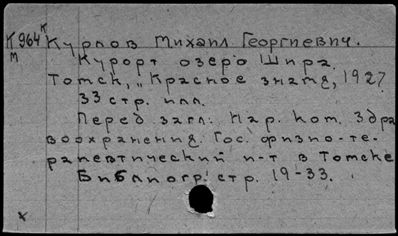 К964
м
Курлов Михаил Георгиевич.
Курорт озеро Шира.
Томск, „Красное знамя, 1927
33 стр. илл.
Перед загл: Нар. ком. Здра
воохранения. Гос. физио-те-
рапевтический и-т в Томске
Библиогр: стр. 19-33.